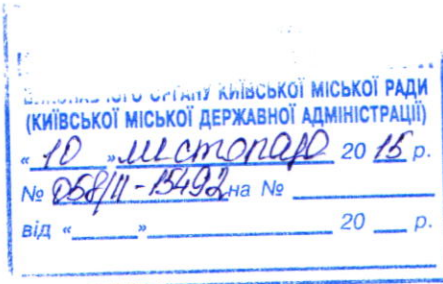 ВИКОНАВЧОГО ОРГАНУ КИЇВСЬКОЇ МІСЬКОЇ РАДИ
(КИЇВСЬКОЇ МІСЬКОЇ ДЕРЖАВНОЇ АДМІНІСТРАЦІЇ)
« 10 » листопада 20 15 р.
№ 058/11-15492 на №
від « » 20 р.